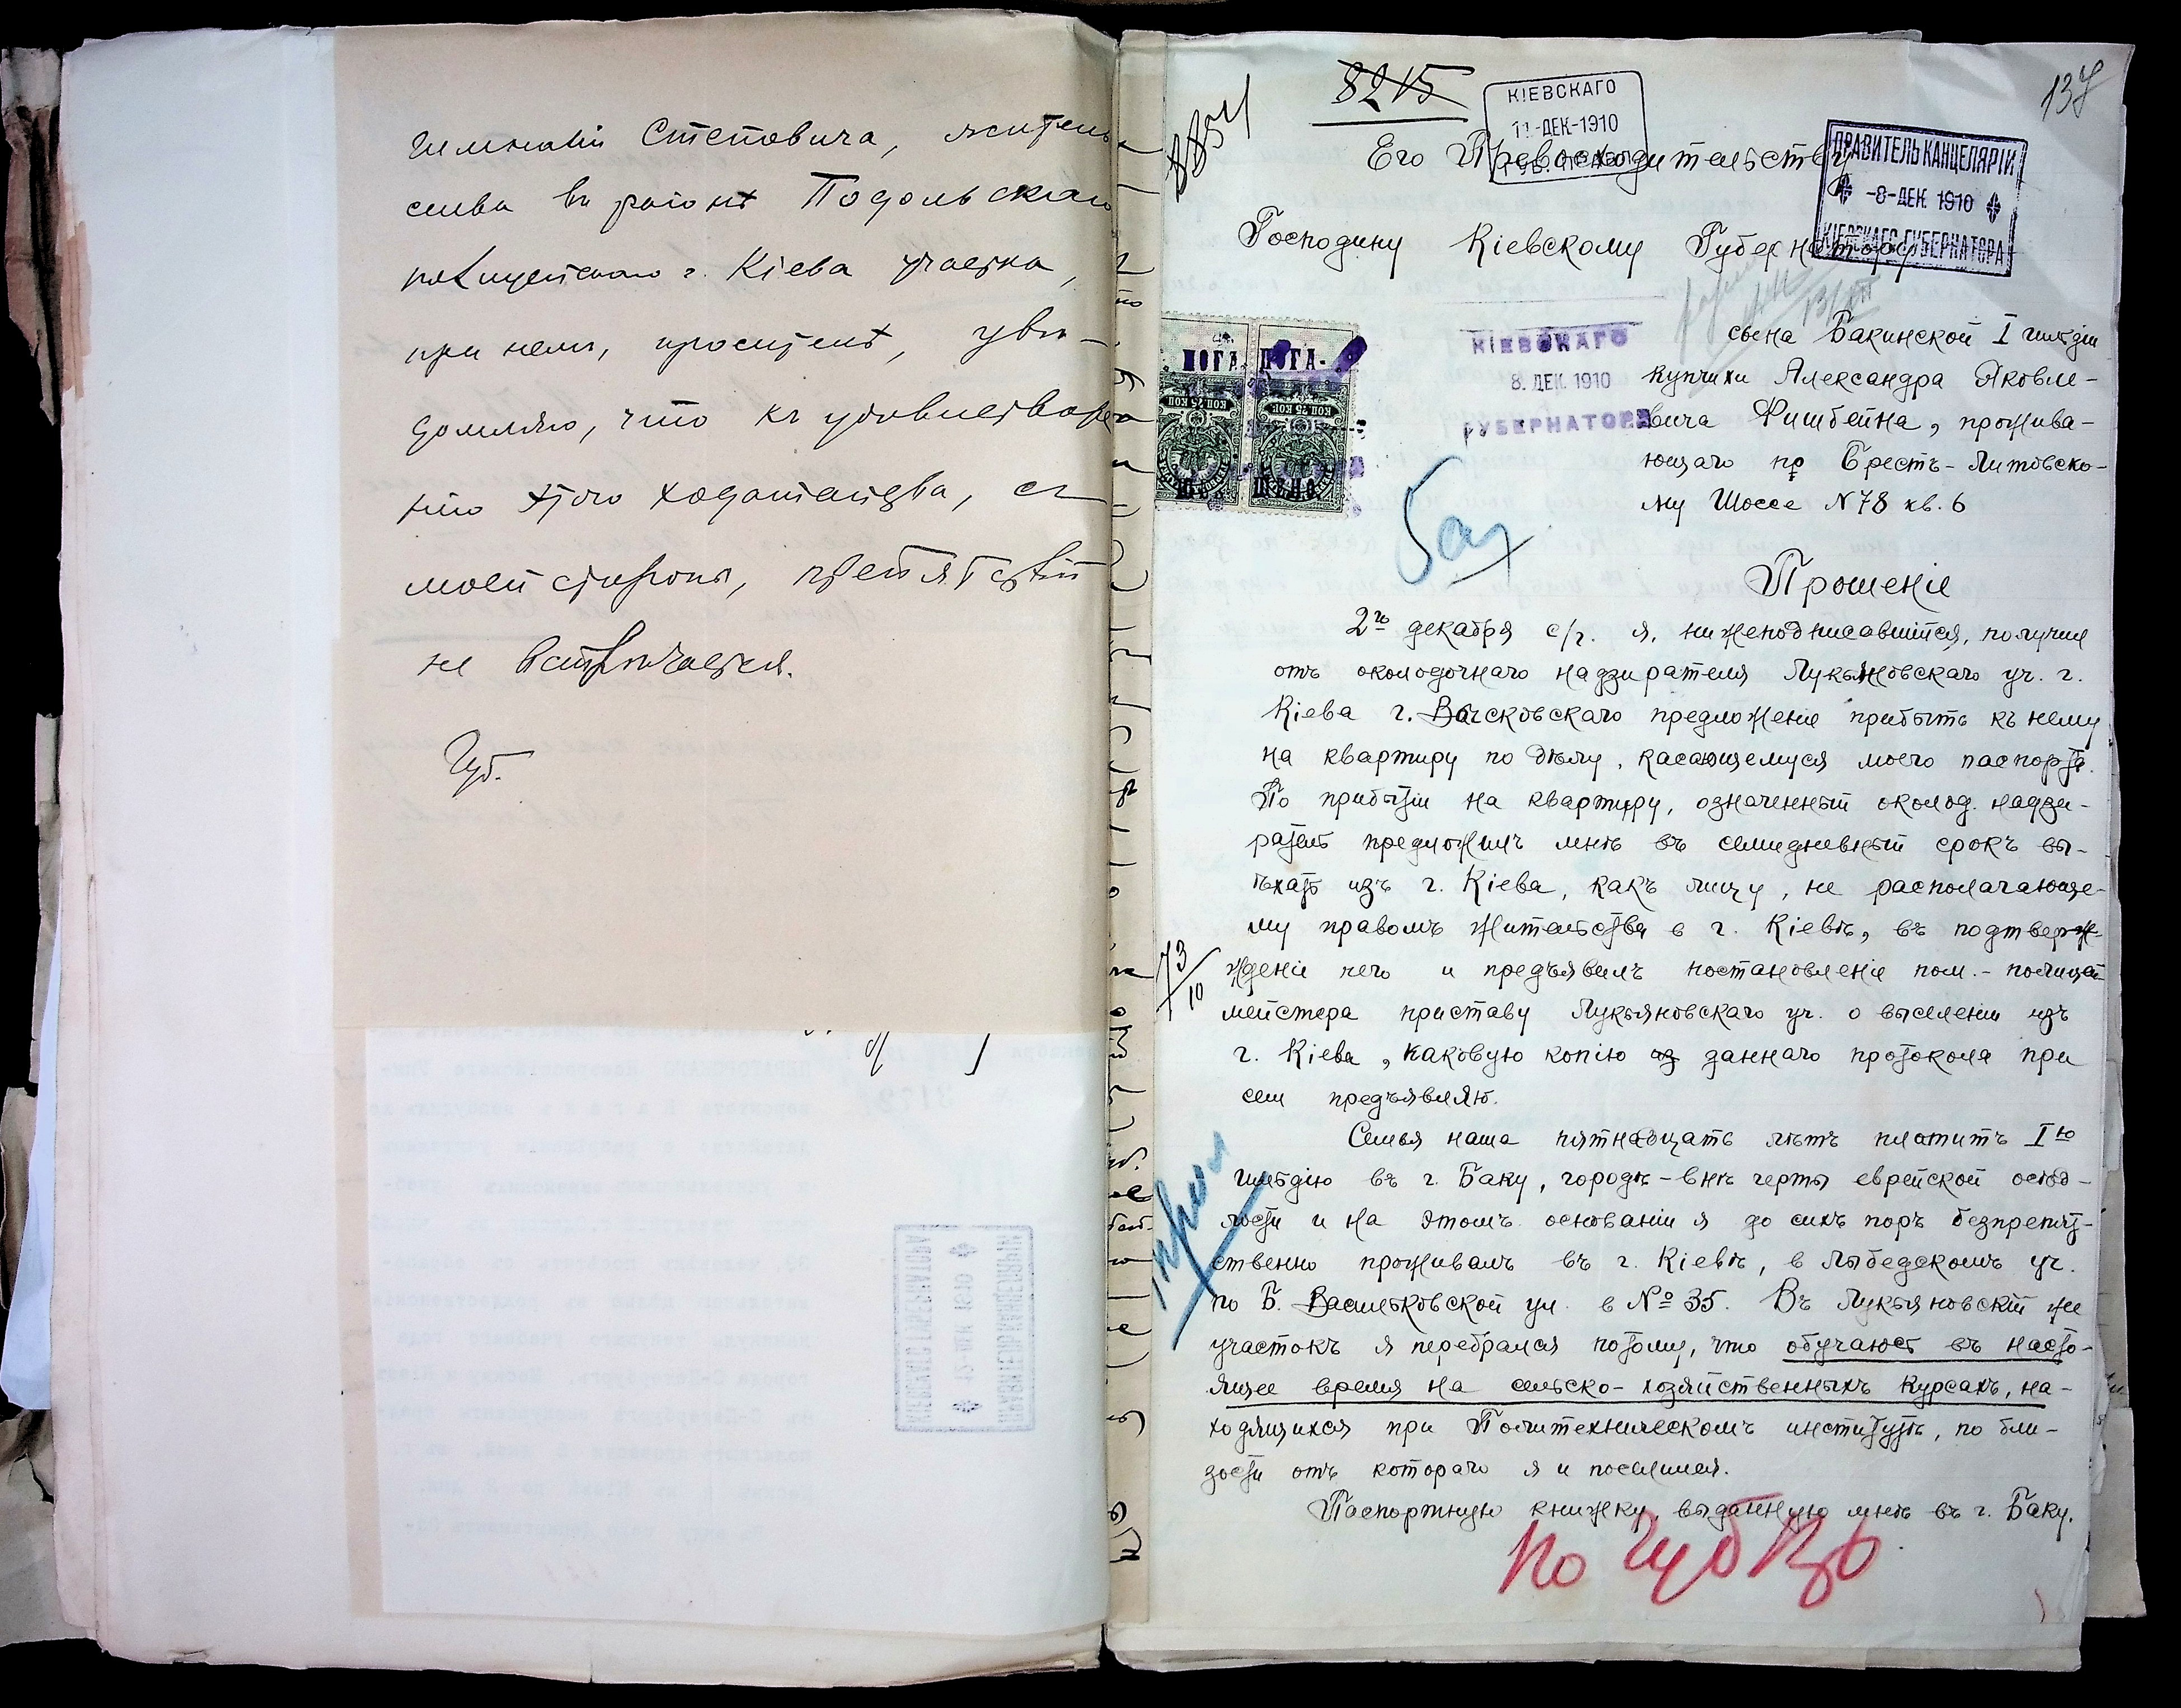 гимназіи Степовича, житель
ства въ районѣ Подольскаго
полицейскаго г. Кіева участка,
при немъ, просителѣ, увѣ-
домляю, что къ удовлетворе
нію этого ходатайства, съ
моей стороны, препятствій
не встрѣчается.
Губ.
137
8215
КІЕВСКАГО
11-ДЕК-1910
ПРАВИТЕЛЬ КАНЦЕЛЯРІИ
-8-ДЕК 1910
КІЕВСКАГО ГУБЕРНАТОРА
Его Превосходительству
Господину Кіевскому Губернатору
13/XII
КІЕВСКАГО
8. ДЕК. 1910
ГУБЕРНАТОРА
сына Бакинской I гильдіи
купчихи Александра Яковле-
вича Фишбейна, прожива-
ющаго по Брестъ-Литовско-
му Шоссе N 78 кв. 6
ПОГА- ПОГА-
75 КОП. 75 КОП.
ШЕНО ШЕНО
Прошеніе
2го декабря с/г. я, нижеподписавшійся, получил
отъ околодочнаго надзирателя Лукьяновскаго уч. г.
Кіева г. предложеніе прибыть къ нему
на квартиру по дѣлу, касающемуся моего паспорта.
По прибытіи на квартиру, означенный околод. надзи-
ратель предложилъ мнѣ въ семидневный срокъ вы-
ѣхать изъ г. Кіева, какъ лицу, не располагающе-
му правомъ жительства в г. Кіевѣ, въ подтверж-
жденіе чего и предъявилъ постановленіе пом.-полицей-
мейстера приставу Лукьяновскаго уч. о выселеніи изъ
г. Кіева, каковую копію даннаго протокола при
сем предъявляю.
73/10
Семья наша пятнадцать лѣтъ платитъ Iю
гильдію въ г. Баку, городѣ-внѣ черты еврейской осѣд-
лости и на этомъ основаніи я до сихъ поръ безпрепят-
ственно проживалъ въ г. Кіевѣ, в Лыбедскомъ уч.
по Б. Васильковской ул. в № 35. Въ Лукьяновскій же
участокъ я перебрался потому, что обучаюсь въ насто-
ящее время на сельско-хозяйственныхъ курсахъ, на-
ходящихся при Политехническомъ институтѣ, по бли-
зости отъ котораго я и поселился.
Паспортную книжку, выданную мнѣ въ г. Баку,